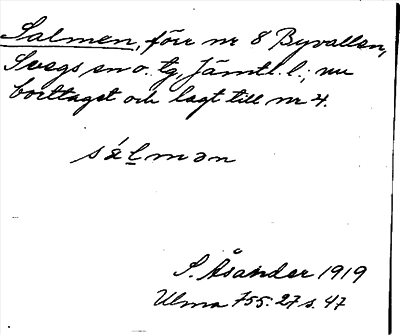 Salmen, förr nr 8 Byvallen,
Svegs sn o. tg, Jämtl. l.; nu
borttaget och lagt till nr 4.
sálmən
S. Åsander 1919
Ulma 755:27 s. 47